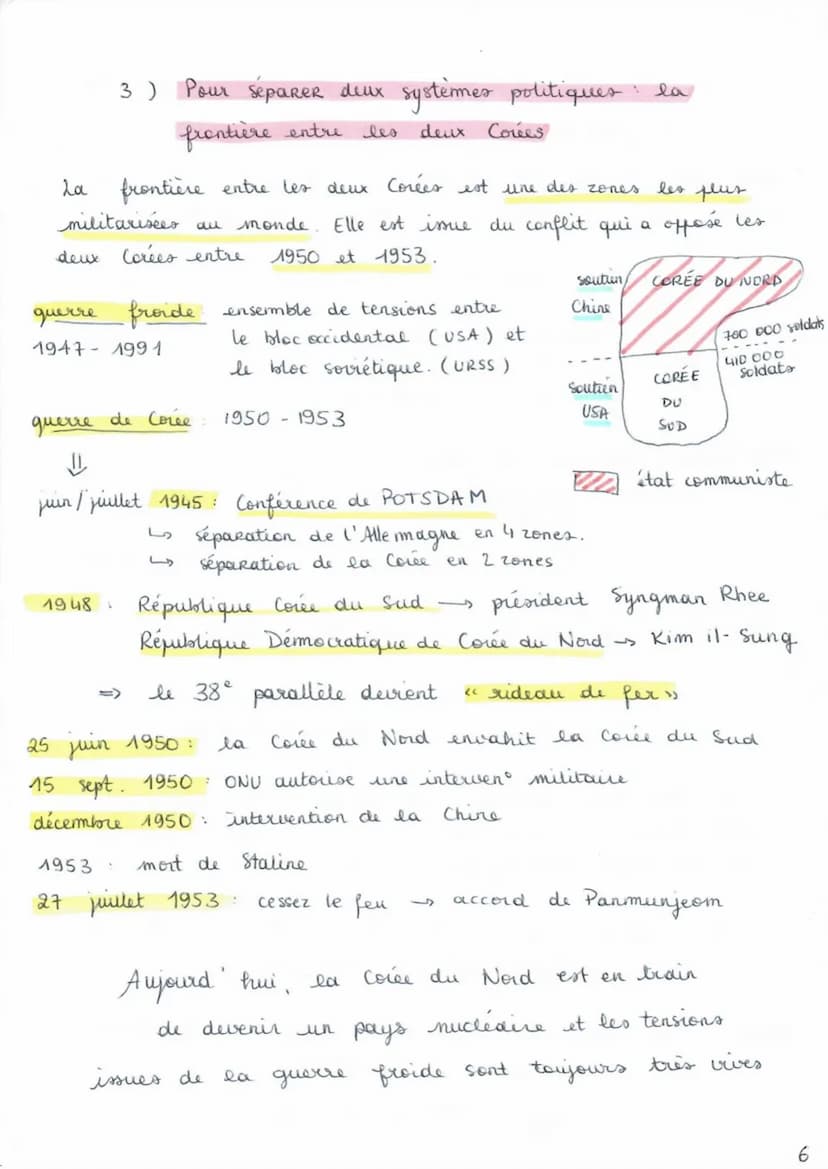 3 ) Pour séparer deux systèmes politiques : la
frontière entre les deux Corées
La frontière entre les deux Corées est une des zones les plus
militarisées au monde. Elle est issue du conflit qui a opposé les
deux Corées entre 1950 et 1953.
guerre froide : ensemble de tensions entre
1947 - 1991 le bloc occidental (USA) et
le bloc soviétique. (URSS)
soutien
Chine
CORÉE DU NORD
700 000 soldats
410 000
soldats
soutien
USA
CORÉE
DU
SUD
état communiste
guerre de Corée : 1950 - 1953
⇓
juin / juillet 1945 : Conférence de POTSDAM
↳ séparation de l'Allemagne en 4 zones.
↳ séparation de la Corée en 2 zones
1948 : République Corée du Sud → président Syngman Rhee
République Démocratique de Corée du Nord → Kim il-Sung
⇒ le 38e parallèle devient « rideau de fer »
25 juin 1950 : la Corée du Nord envahit la Corée du Sud
15 sept. 1950 : ONU autorise une interven° militaire
décembre 1950 : intervention de la Chine
1953 : mort de Staline
27 juillet 1953 : cessez le feu → accord de Panmunjeom
Aujourd'hui, la Corée du Nord est en train
de devenir un pays nucléaire et les tensions
issues de la guerre froide sont toujours très vives
6